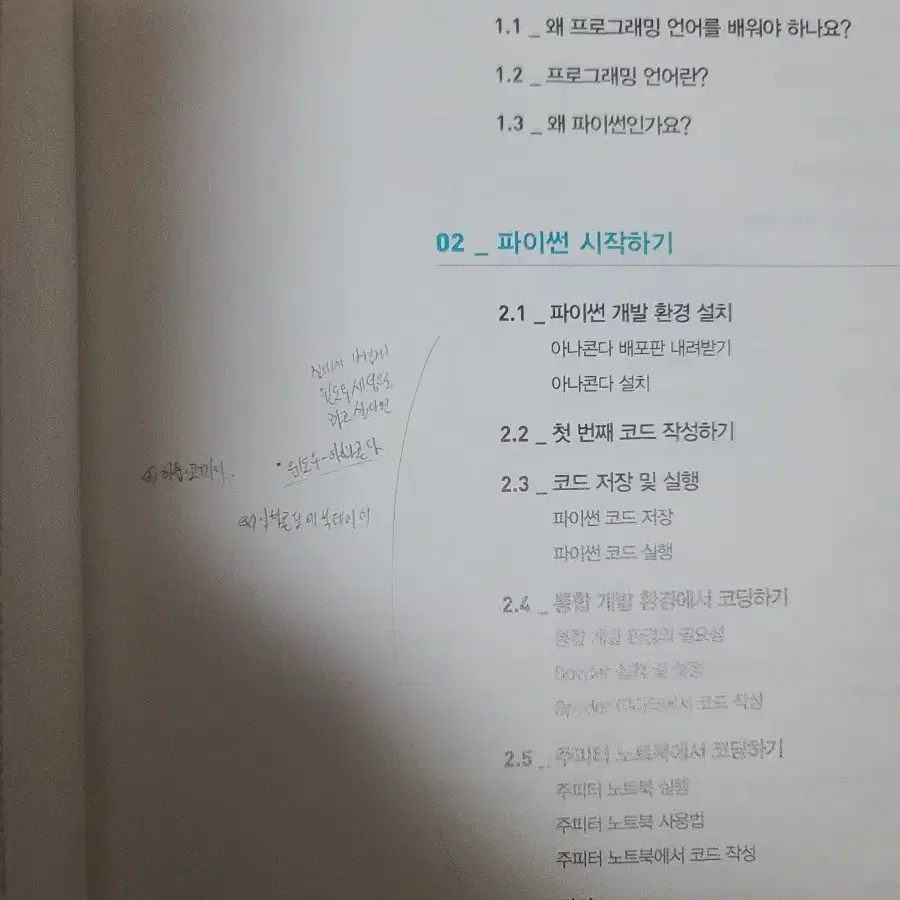 1.1 _ 왜 프로그래밍 언어를 배워야 하나요?
1.2 _ 프로그래밍 언어란?
1.3 _ 왜 파이썬인가요?
02 _ 파이썬 시작하기
2.1 _ 파이썬 개발 환경 설치
아나콘다 배포판 내려받기
아나콘다 설치
2.2 _ 첫 번째 코드 작성하기
2.3 _ 코드 저장 및 실행
파이썬 코드 저장
파이썬 코드 실행
2.4 _ 통합 개발 환경에서 코딩하기
통합 개발 환경의 필요성
Spyder 실행 및 설정
Spyder 에서 코드 작성
2.5 _ 주피터 노트북에서 코딩하기
주피터 노트북 실행
주피터 노트북 사용법
주피터 노트북에서 코드 작성
윈도우-아나콘다